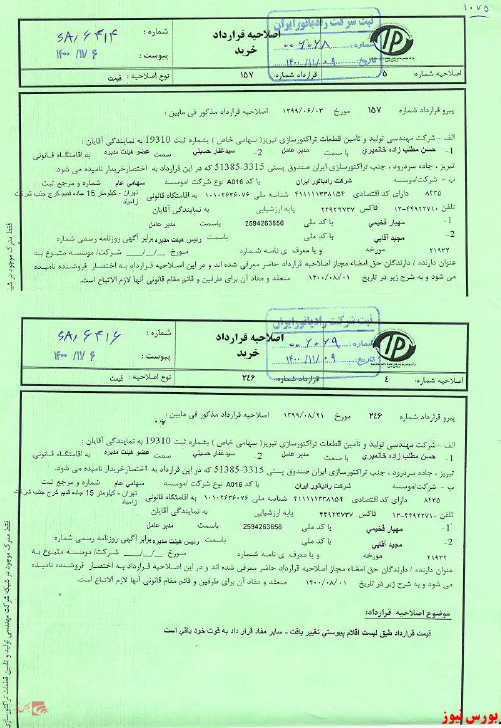 ۱۰۷۵
ثبت شرکت رادیاتور ایران
شماره : SA, ۶۴۱۴
پیوست : ۱۴۰۰/۱۱/۶
اصلاحیه قرارداد
خرید
شماره: ۰۰۷۰۷۸
تاریخ: ۱۴۰۰/۱۱/۰۹
IP
نوع اصلاحیه : قیمت
قرارداد شماره: ۱۵۷
اصلاحیه شماره: ۵
پیرو قرارداد شماره ۱۵۷ مورخ ۱۳۹۹/۰۶/۰۳ اصلاحیه قرارداد مذکور فی مابین :
الف - شرکت مهندسی تولید و تامین قطعات تراکتورسازی تبریز( سهامی خاص ) بشماره ثبت 19310 به نمایندگی آقایان :
1- حسن مطلب زاده خانمیری با سمت مدیر عامل 2- سیدغفار حسینی سمت عضو هیئت مدیره به اقامتگاه قانونی
تبریز ، جاده سردرود ، جنب تراکتورسازی ایران صندوق پستی 3315-51385 که در این قرارداد به اختصار خریدار نامیده می شود.
ب - شرکت/موسسه شرکت رادیاتور ایران با کد A016 نوع شرکت /موسسه سهامی عام شماره و مرجع ثبت
۸۲۳۵ دارای کد اقتصادی ۴۱۱۱۱۱۳۸۱۵۴ شناسه ملی ۱۰۱۰۲۶۳۶۰۷۶ به اقامتگاه قانونی تهران - کیلومتر 15 جاده قدیم کرج جنب شرکت زامیاد
تلفن ۱۳-۴۴۹۲۲۷۱۰ فاکس ۴۴۹۲۳۷۳۷ پایه ارزشیابی به نمایندگی آقایان
1- مهیار فخیمی با کد ملی 2594263656 باسمت مدیر عامل
2- مجید آقایی با کد ملی باسمت رئیس هیئت مدیره برابر آگهی روزنامه رسمی شماره
۲۱۹۳۲ مورخه و یا معرفی نامه شماره مورخ __/__/__ شرکت/ موسسه متبوع به
عنوان دارنده / دارندگان حق امضاء مجاز اصلاحیه قرارداد حاضر معرفی شده اند و در این اصلاحیه قرارداد به اختصار فروشنده نامیده
می شود و به شرح زیر در تاریخ ۱۴۰۰/۰۸/۰۱ منعقد و مفاد آن برای طرفین و قائم مقام قانونی آنها لازم الاتباع است.
ثبت شرکت رادیاتور ایران
شماره : SA, ۶۴۱۶
پیوست : ۱۴۰۰/۱۱/۶
اصلاحیه قرارداد
خرید
شماره: ۰۰۷۰۷۹
تاریخ: ۱۴۰۰/۱۱/۰۹
IP
نوع اصلاحیه : قیمت
قرارداد شماره: ۳۴۶
اصلاحیه شماره: ۴
پیرو قرارداد شماره ۳۴۶ مورخ ۱۳۹۹/۰۸/۲۱ اصلاحیه قرارداد مذکور فی مابین:
الف - شرکت مهندسی تولید و تامین قطعات تراکتورسازی تبریز( سهامی خاص ) بشماره ثبت 19310 به نمایندگی آقایان :
1- حسن مطلب زاده خانمیری با سمت مدیر عامل 2- سیدغفار حسینی سمت عضو هیئت مدیره به اقامتگاه قانونی
تبریز ، جاده سردرود ، جنب تراکتورسازی ایران صندوق پستی 3315-51385 که در این قرارداد به اختصار خریدار نامیده می شود.
ب - شرکت/موسسه شرکت رادیاتور ایران با کد A016 نوع شرکت /موسسه سهامی عام شماره و مرجع ثبت
۸۲۳۵ دارای کد اقتصادی ۴۱۱۱۱۱۳۸۱۵۴ شناسه ملی ۱۰۱۰۲۶۳۶۰۷۶ به اقامتگاه قانونی تهران - کیلومتر 15 جاده قدیم کرج جنب شرکت زامیاد
تلفن ۱۳-۴۴۹۲۲۷۱۰ فاکس ۴۴۹۲۳۷۳۷ پایه ارزشیابی به نمایندگی آقایان
1- مهیار فخیمی با کد ملی 2594263656 باسمت مدیر عامل
2- مجید آقایی با کد ملی باسمت رئیس هیئت مدیره برابر آگهی روزنامه رسمی شماره
۲۱۹۳۲ مورخه و یا معرفی نامه شماره مورخ __/__/__ شرکت/ موسسه متبوع به
عنوان دارنده / دارندگان حق امضاء مجاز اصلاحیه قرارداد حاضر معرفی شده اند و در این اصلاحیه قرارداد به اختصار فروشنده نامیده
می شود و به شرح زیر در تاریخ ۱۴۰۰/۰۸/۰۱ منعقد و مفاد آن برای طرفین و قائم مقام قانونی آنها لازم الاتباع است.
موضوع اصلاحیه قرارداد:
قیمت قرارداد طبق لیست اقلام پیوستی تغییر یافت - سایر مفاد قرار داد به قوت خود باقی است
فقط مدرک موجود در شبکه شرکت مهندسی تولید و تامین قطعات تراکتورسازی
بورس نیوز